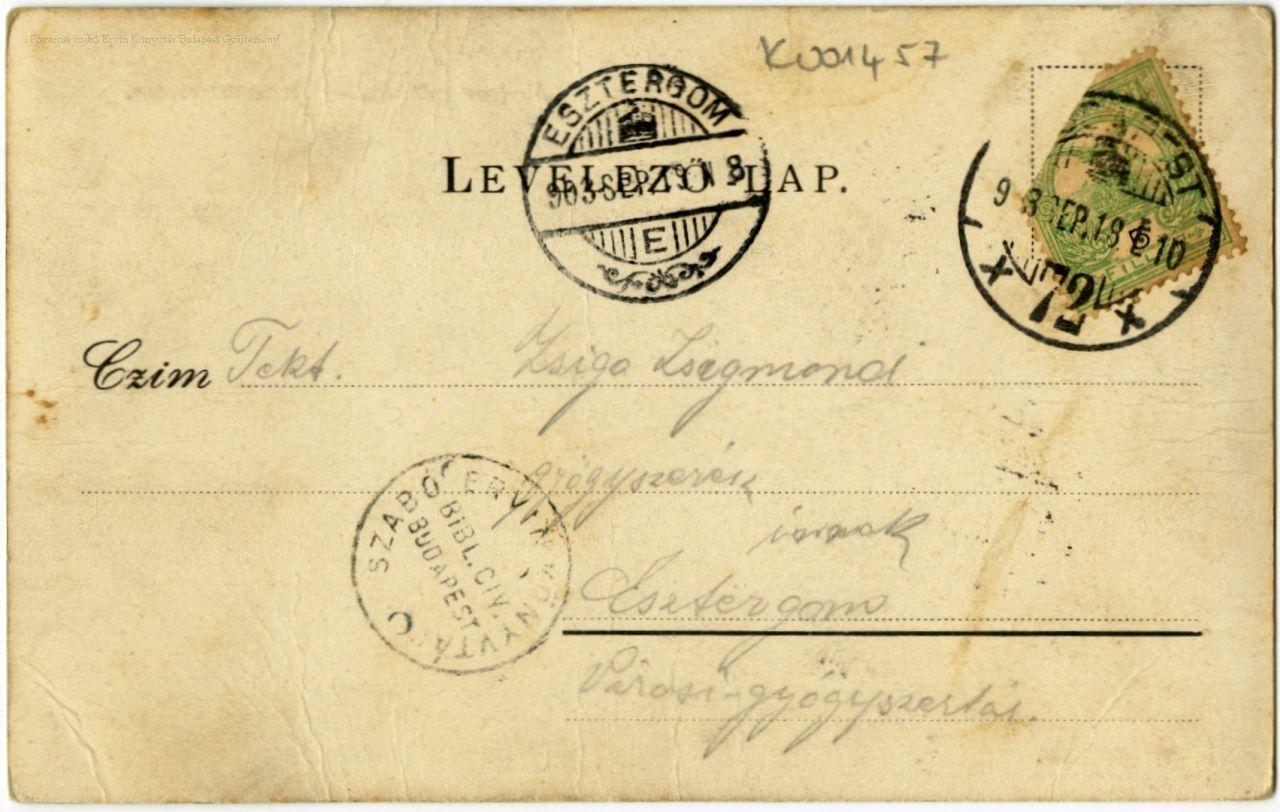 Fővárosi Szabó Ervin Könyvtár Budapest Gyűjtemény
KV01457
ESZTERGOM
903 SEP. 19 N 8
E
LEVELEZŐ LAP.
9 3 SEP. 18
10
FILLÉR
Czim Tekt. Zsiga Zsigmond
gyógyszerész
úrnak
Esztergom
Városi-gyógyszertár.
SZABÓ ERVIN KÖNYVTÁR
BIBL. CIV.
BUDAPEST